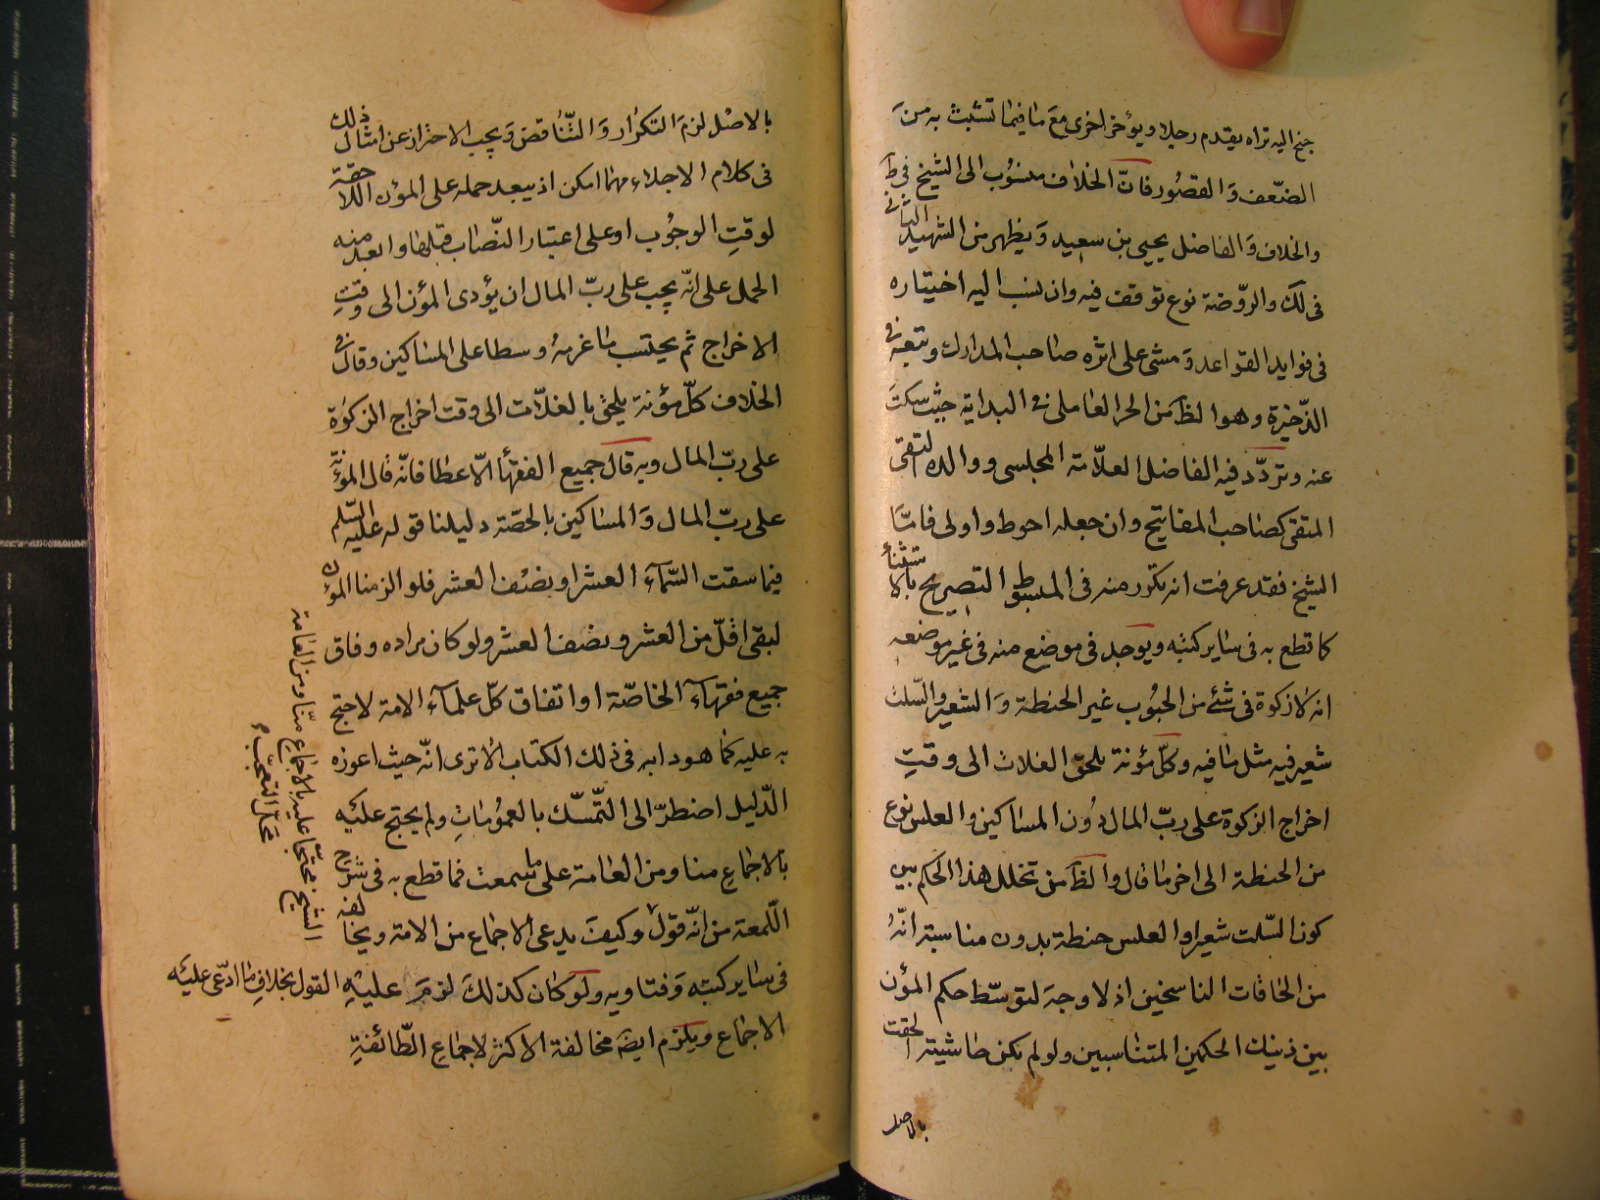 جنح اليه تراه يقدم رجلا ويؤخر اخرى مع ما فيما تشبث به من
الضعف والقصور فان الخلاف منسوب الى الشيخ في ط
والخلاف والفاضل يحيى بن سعيد ويظهر من الشهيد الثاني
في لك والروضة نوع توقف فيه وان نسب اليه اختياره
في فوايد القواعد ومشى على اثره صاحب المدارك وتبعه في
الذخيرة وهو الظ من الحر العاملي في البداية حيث سكت
عنه وتردد فيه الفاضل العلامة المجلسي ووالده التقي
المتقي كصاحب المفاتيح وان جعله احوط واولى فاما
الشيخ فقد عرفت انه تكرر منه في المبسوط التصريح بالاستثناء
كما قطع به في ساير كتبه ويوجد في موضع منه في غير موضعه
انه لا زكوة في شئ من الحبوب غير الحنطة والشعير والسلت
شعير فيه مثل ما فيه وكل مؤنة يلحق الغلات الى وقت
اخراج الزكوة على رب المال دون المساكين والعلس نوع
من الحنطة الى اخر ما قال والظ من تخلل هذا الحكم بين
كون السلت شعيرا والعلس حنطة بدون مناسبة انه
من الحاقات الناسخين اذ لا وجه لتوسط حكم المؤن
بين ذينك الحكمين المتناسبين ولو لم يكن حاشية الحقت
بالاصل
بالاصل لزم التكرار والتناقض ويجب الاحتراز عن امثال ذلك
في كلام الاجلاء مهما امكن اذ يبعد حمله على المؤن اللاحقة
لوقت الوجوب او على اعتبار النصاب قبلها وابعد منه
الحمل على انه يجب على رب المال ان يؤدي المؤن الى وقت
الاخراج ثم يحتسب ما غرمه وسطا على المساكين وقال في
الخلاف كل مؤنة يلحق بالغلات الى وقت اخراج الزكوة
على رب المال وبه قال جميع الفقهاء الا عطا فانه قال المؤنة
على رب المال والمساكين بالحصة دليلنا قوله عليه السلم
فيما سقت السماء العشر او نصف العشر فلو الزمنا المؤن
لبقى اقل من العشر ونصف العشر ولو كان مراده وفاق
جميع فقهاء الخاصة او اتفاق كل علماء الامة لاحتج
به عليه كما هو دابه في ذلك الكتاب الا ترى انه حيث اعوزه
الدليل اضطر الى التمسك بالعمومات ولم يحتج عليه
بالاجماع منا ومن العامة على ما سمعت فما قطع به في شرح
اللمعة من انه قول وكيف يدعى الاجماع من الامة ويخالفه
في ساير كتبه وفتاويه ولو كان كذلك لزم عليه القول بخلاف ما ادعى عليه
الاجماع ويلزم ايضه مخالفة الاكثر لاجماع الطائفة
الشيخ محتجا عليه بالاجماع منا ومن العامة
محل التعجب